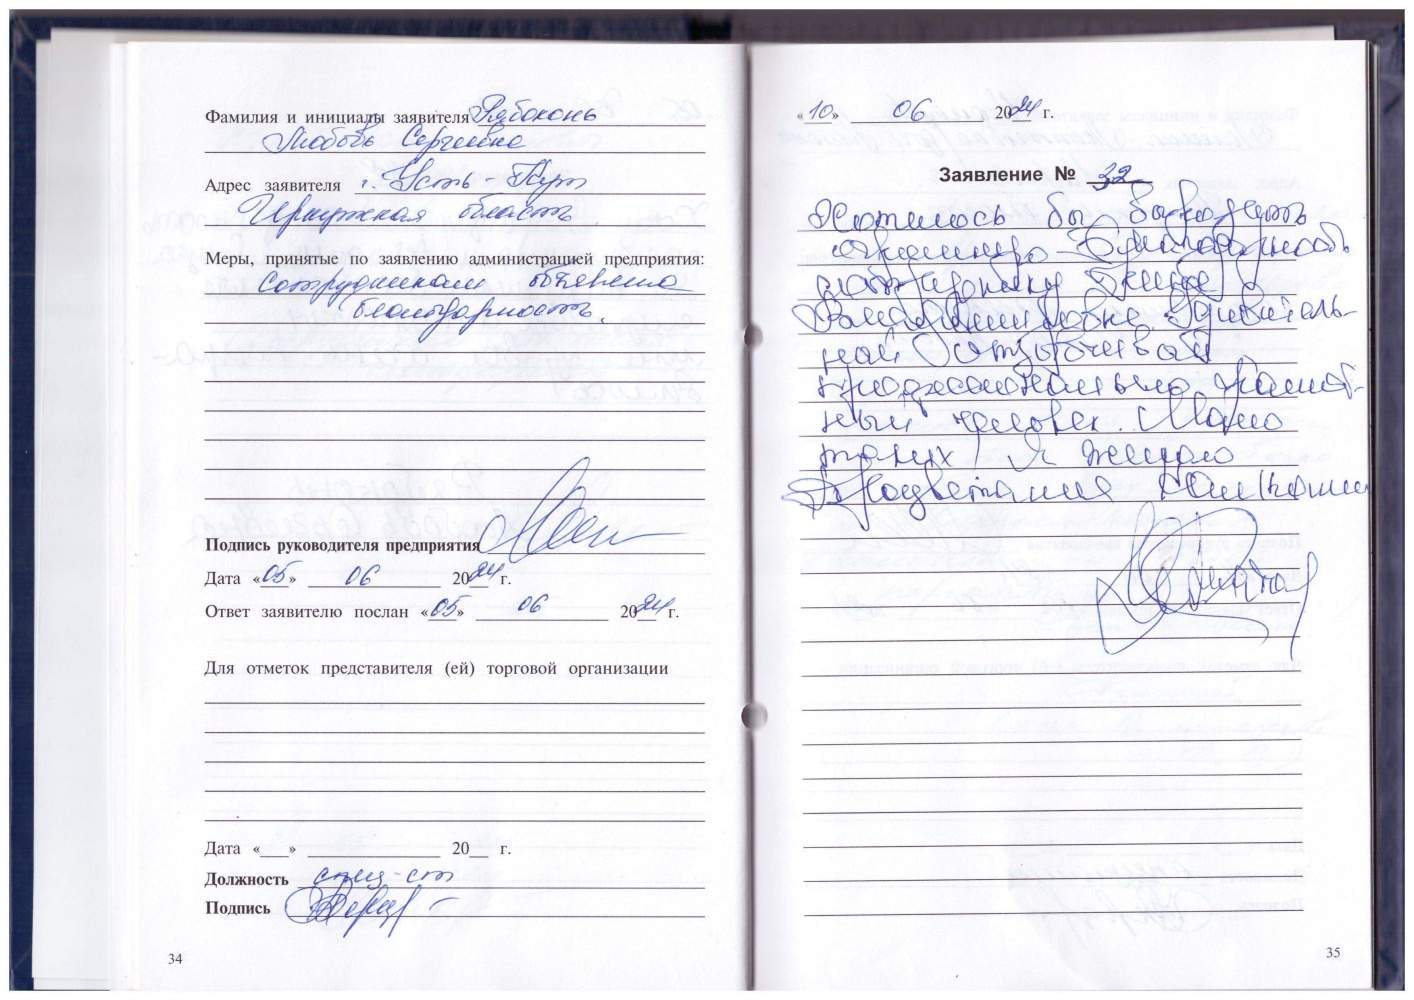 Фамилия и инициалы заявителя Рябоконь
Любовь Сергеевна
Адрес заявителя г. Усть-Кут
Иркутская область
Меры, принятые по заявлению администрацией предприятия:
Сотрудникам объявлена
благодарность.
Подпись руководителя предприятия
Дата «05» 06 2024 г.
Ответ заявителю послан «05» 06 2024 г.
Для отметок представителя (ей) торговой организации
Дата «___» 20__ г.
Должность спец-ст
Подпись
34
«10» 06 2024 г.
Заявление № 32
Хотелось бы выразить
огромную Благодарность
сотруднику
Владимировне. Удивитель-
ной отзывчивости
профессионально грамот-
ный человек. Мало
таких и желаю
Процветания Компании
35